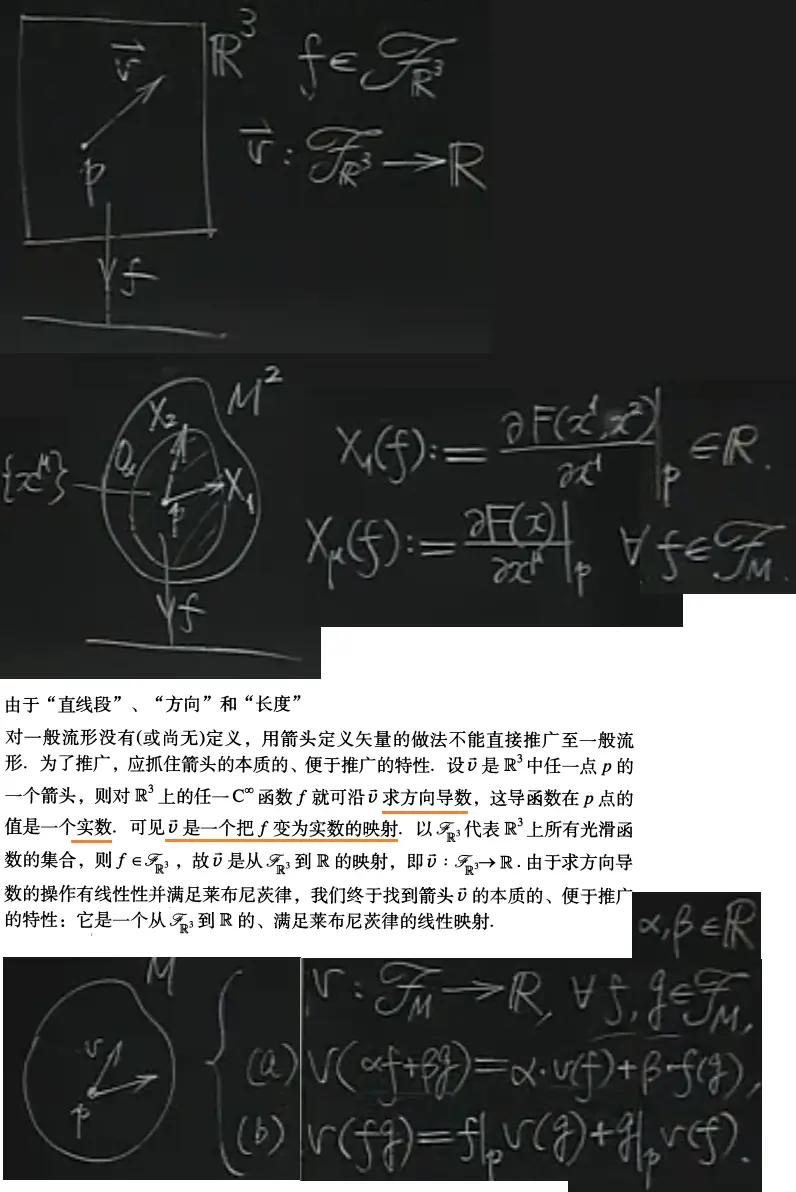 v⃗ ℝ³ f∈ℱ_ℝ³
p v⃗ : ℱ_ℝ³ → ℝ
f
M²
X₂
{x^μ} O_α X₁
p
f
X₁(f) := ∂F(x¹,x²)/∂x¹ |_p ∈ ℝ.
X_μ(f) := ∂F(x)/∂x^μ |_p ∀ f∈ℱ_M.
由于“直线段”、“方向”和“长度”
对一般流形没有(或尚无)定义，用箭头定义矢量的做法不能直接推广至一般流
形. 为了推广，应抓住箭头的本质的、便于推广的特性. 设 v⃗ 是 ℝ³ 中任一点 p 的
一个箭头，则对 ℝ³ 上的任一 C^∞ 函数 f 就可沿 v⃗ 求方向导数，这导函数在 p 点的
值是一个实数. 可见 v⃗ 是一个把 f 变为实数的映射. 以 ℱ_ℝ³ 代表 ℝ³ 上所有光滑函
数的集合，则 f∈ℱ_ℝ³，故 v⃗ 是从 ℱ_ℝ³ 到 ℝ 的映射，即 v⃗ : ℱ_ℝ³→ℝ. 由于求方向导
数的操作有线性性并满足莱布尼茨律，我们终于找到箭头 v⃗ 的本质的、便于推广
的特性：它是一个从 ℱ_ℝ³ 到 ℝ 的、满足莱布尼茨律的线性映射.
α,β∈ℝ
M
v
p
v : ℱ_M → ℝ, ∀ f, g∈ℱ_M,
(a) v(αf+βg)=α·v(f)+β·f(g),
(b) v(fg)=f|_p v(g)+g|_p v(f).